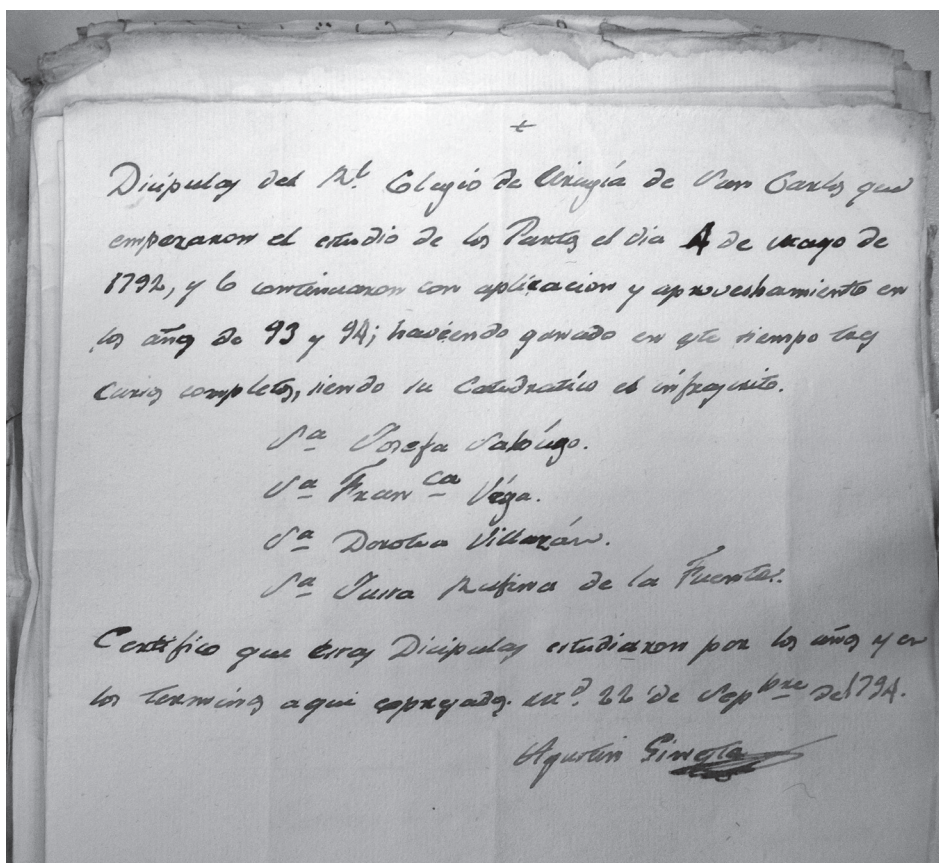 +
Dicipulas del Rl. Colegio de Cirugía de San Carlos que
empezaron el estudio de los Partos el dia 4 de mayo de
1792, y lo continuaron con aplicacion y aprovechamiento en
los años de 93 y 94; haviendo ganado en este tiempo tres
cursos completos, siendo su Catedratico el infrascrito.
Sa Josefa
Sa Franca Véga.
Sa Dorotea Villazán.
Sa Rufina de la Fuente.
Certifico que estas Dicipulas estudiaron por los años y en
los terminos aqui espresados. Md. 22 de Sepbre de 1794.
Agustin Ginesta